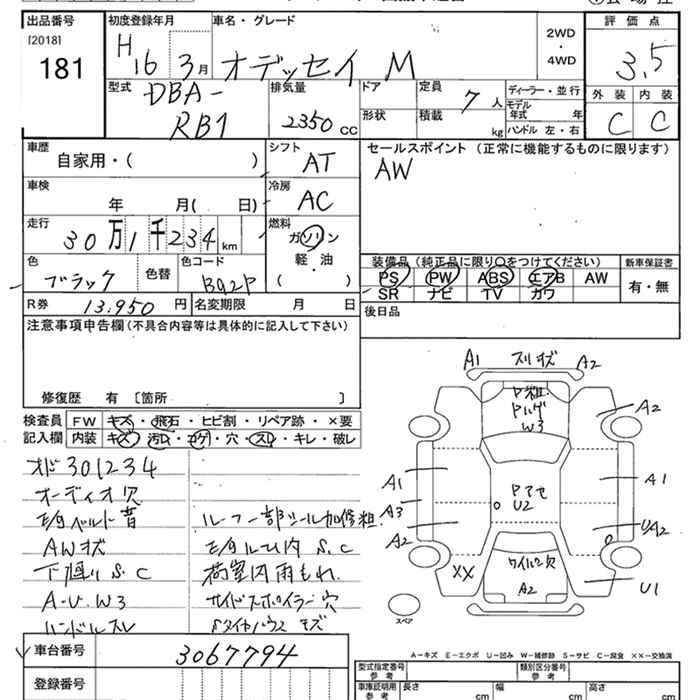 出品番号
[2018]
181
初度登録年月
H 16 3月
車名・グレード
オデッセイ M
2WD
・
4WD
評価点
3.5
外装 内装
C C
型式
DBA-
RB1
排気量
2350 cc
ドア
形状
定員
7人
積載
kg
ディーラー・並行
モデル
年式 年
ハンドル 左・右
車歴
自家用・( )
シフト
AT
セールスポイント (正常に機能するものに限ります)
AW
車検
年 月( 日)
冷房
AC
走行
30万1千234km
燃料
ガソリン
軽・油
( )
色
ブラック
色替
色コード
B92P
装備品 (純正品に限り○をつけてください)
PS PW ABS エアB AW
SR ナビ TV カワ
新車保証書
有・無
R券 13,950円
名変期限 月 日
後日品
注意事項申告欄 (不具合内容等は具体的に記入して下さい)
修復歴 有 〔箇所 〕
検査員
記入欄
FW キズ・飛石・ヒビ割・リペア跡・×要
内装 キズ・汚レ・コゲ・穴・スレ・キレ・破レ
オド301234
オーディオ欠
AWキズ
下廻りS.C
A-U.W3
ハンドルスレ
ルーフ一部シール加修粗.
荷室内雨もれ
サイドスポイラー穴
タイヤハウスキズ
A1 スリキズ A2
P粗.
Pハゲ
W3
A2
A1
A3
A2
Pアセ
U2
A1
UA2
XX
ワイパー欠
A2
U1
スペア
A-キズ E-エクボ U-凹み W-補修跡 S-サビ C-腐食 XX-交換済
車台番号
3067794
登録番号
型式指定番号
参考
類別区分番号
参考
車庫証明用
参考
長さ cm
幅 cm
高さ cm